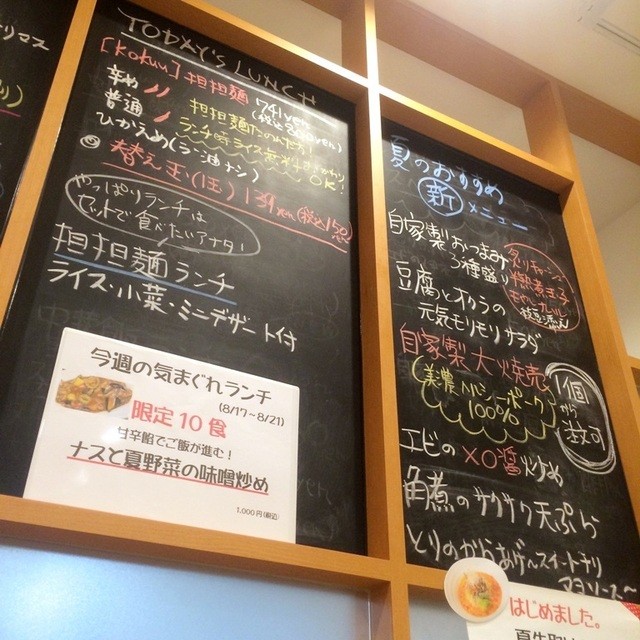 リマス
TODAY'S LUNCH
[Kokuu] 担担麺 741yen
(税込800yen)
辛め
普通
ひかえめ(ラー油ナシ)
担担麺たのんだら!
ランチ時ライス無料
OK!
替え玉(1玉) 139yen(税込150)
やっぱりランチは
セットで食べたいアナタ!
担担麺ランチ
ライス・小菜・ミニデザート付
今週の気まぐれランチ
(8/17〜8/21)
限定10食
甘辛餡でご飯が進む!
ナスと夏野菜の味噌炒め
1,000円(税込)
夏のおすすめ
新メニュー
自家製おつまみ
3種盛り
炙りチャーシュー
豆腐とオクラの
元気モリモリサラダ
自家製大焼売
(美濃ヘルシーポーク)
100%
1個
から
注文可
エビのXO醤炒め
角煮のサクサク天ぷら
とりのからあげ〜スイートチリ
マヨソース〜
はじめました。